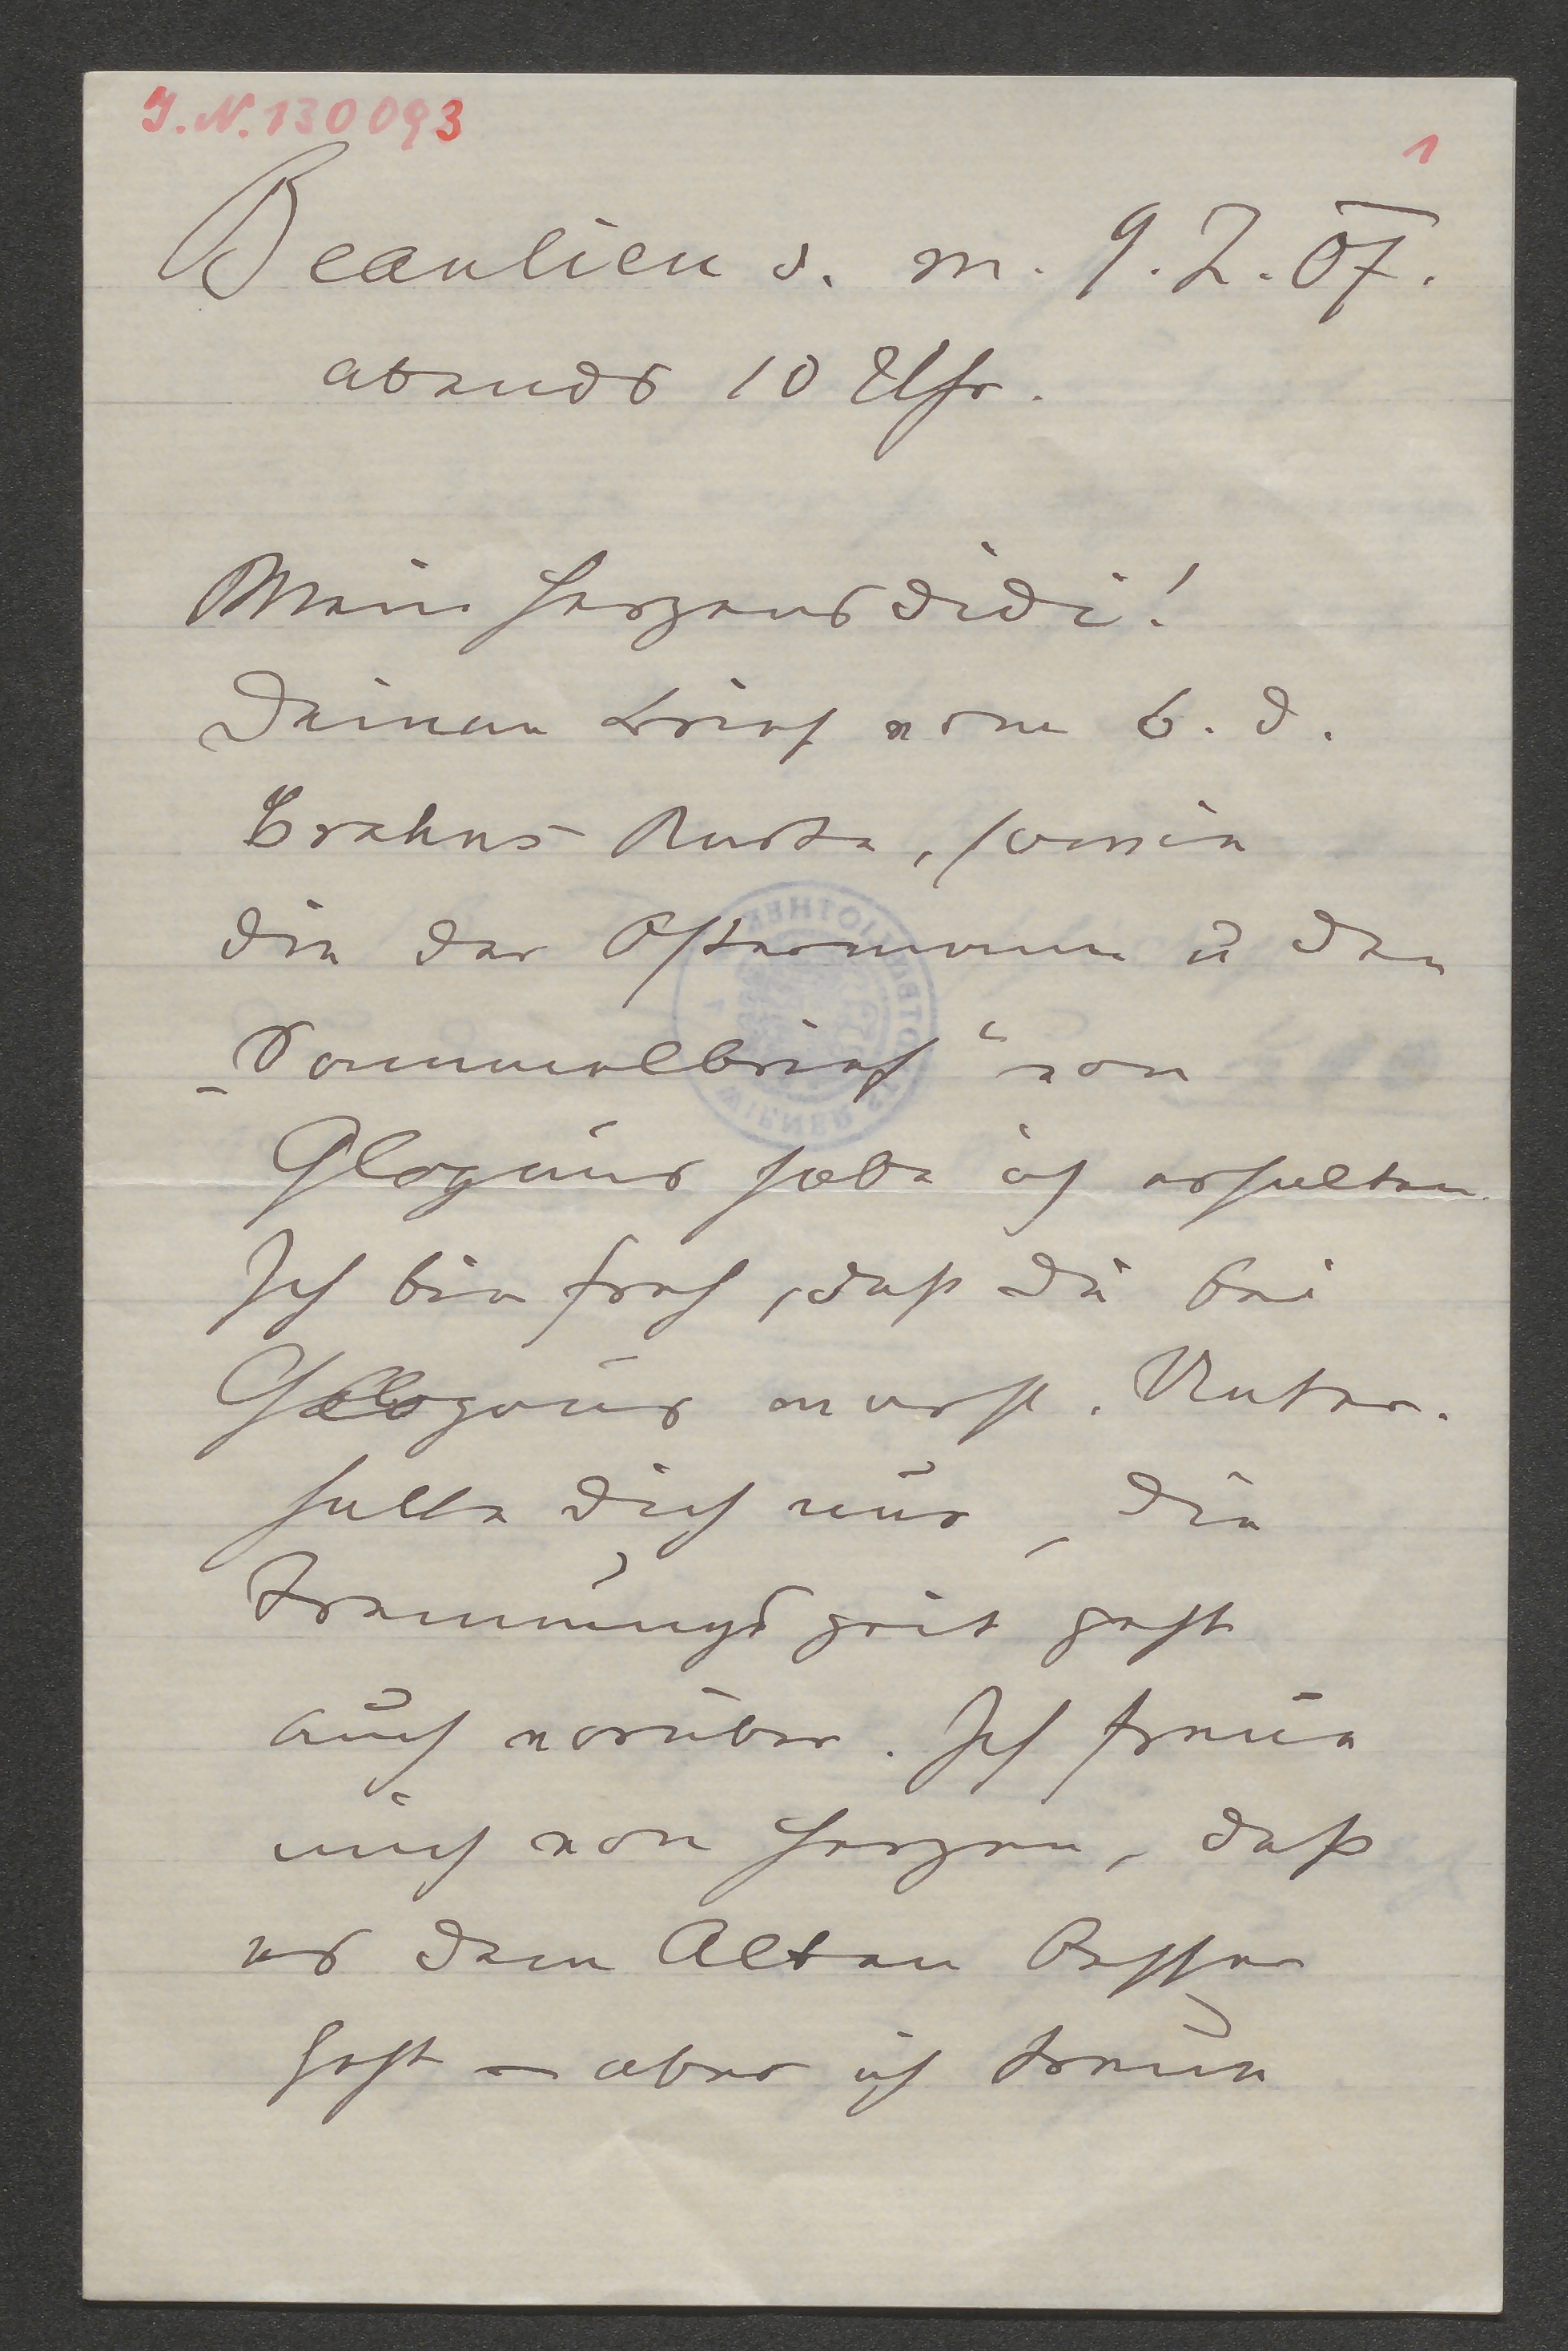 I.N. 130093
1
Beaulieu s. m. 9.2.07.
abends 10 Uhr.
Mein Herzensdidi!
Deinen Brief vom 6. d.
Brahms Karte, sowie
die der Ostermann u den
„Sammelbrief“ von
Glogaus habe ich erhalten.
Ich bin froh, daß du bei
Glogaus warst. Unter-
halte dich nur, die
Trennungszeit geht
auch vorüber. Ich freue
mich von Herzen, daß
es dem Alten besser
geht – aber ich traue